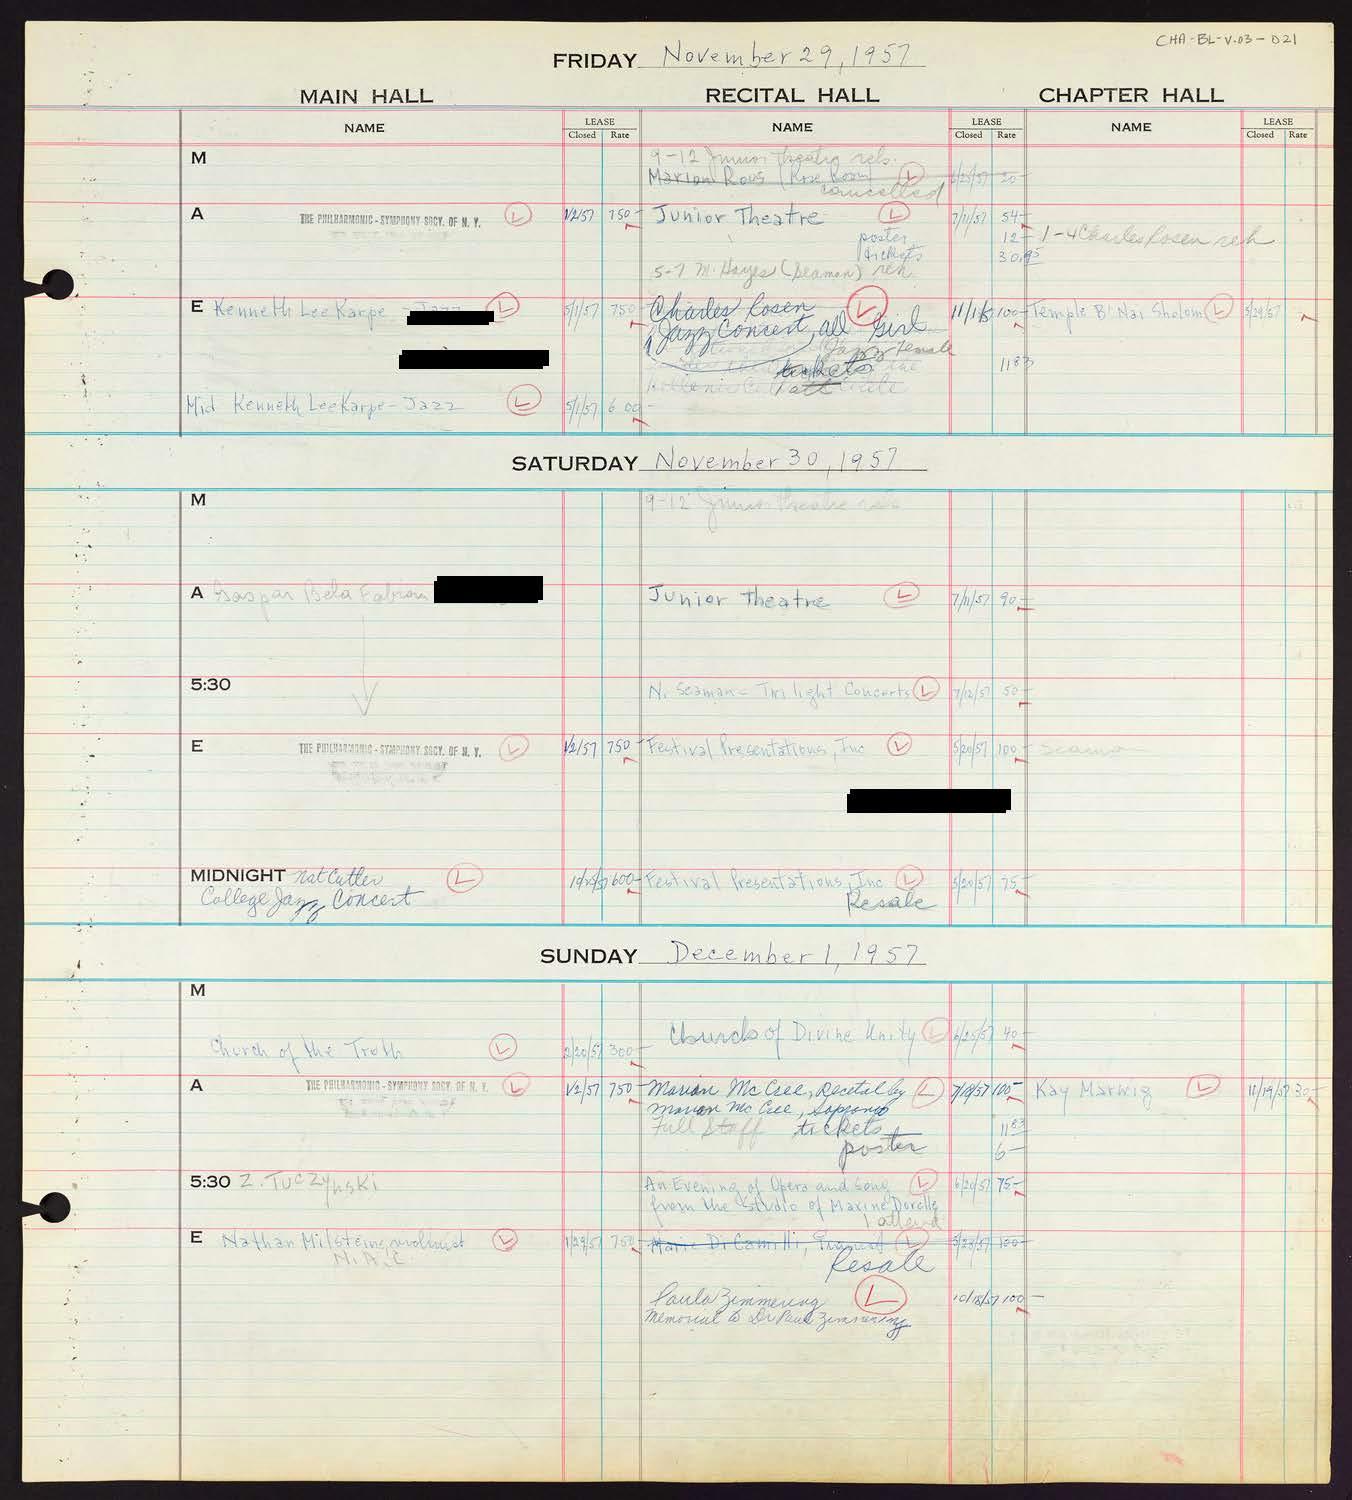 CHA-BL-V.03-021
FRIDAY November 29, 1957
MAIN HALL RECITAL HALL CHAPTER HALL
NAME LEASE Closed Rate NAME LEASE Closed Rate NAME LEASE Closed Rate
M
9-12 Junior Theatre reh.
Marion Rous (Rose Room) L 20-
cancelled
A THE PHILHARMONIC-SYMPHONY SOCY. OF N. Y. L 1/2/57 750- Junior Theatre L 7/11/57 54-
poster 12- 1-4 Charles Rosen reh
tickets 30.95
5-7 M. Hayes (Seaman) reh.
E Kenneth Lee Karpe - Jazz L 5/1/57 750- Charles Rosen L 100- Temple B'Nai Sholom L 5/29/57
Jazz Concert, all Girl
Jazz female
tickets 11 83
Mid Kenneth Lee Karpe - Jazz L 5/1/57 600-
SATURDAY November 30, 1957
M 9-12 Junior Theatre reh
A Gaspar Bela Fabian Junior Theatre L 7/11/57 90-
5:30 N. Seaman - Twilight Concerts L 7/12/57 50-
E THE PHILHARMONIC-SYMPHONY SOCY. OF N. Y. L 1/2/57 750- Festival Presentations, Inc L 5/20/57 100- Seaman
MIDNIGHT Nat Cutler L 600- Festival Presentations, Inc L 5/20/57 75-
College Jazz Concert Resale
SUNDAY December 1, 1957
M
Church of Divine Unity L 6/25/57 40-
Church of the Truth L 2/20/57 300-
A THE PHILHARMONIC-SYMPHONY SOCY. OF N. Y. L 1/2/57 750- Marian McCree, Recital by L 100- Kay Marwig L 11/19/57 30-
Marian McCree, Soprano
Full Staff tickets 11 83
poster 6-
5:30 Z. Tuczynski An Evening of Opera and Song L 6/20/57 75-
from the Studio of Maxine Dorelle
1 attend
E Nathan Milstein, violinist L 1/29/57 750- Marie DiCamilli, L 5/23/57 100-
N.A.C. Resale
Paula Zimmering L 10/18/57 100-
Memorial to Dr Paul Zimmering